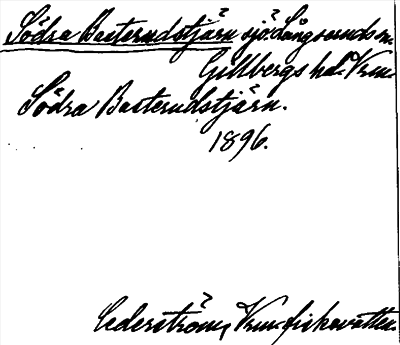 Södra Basterudstjärn sjö. Långseruds sn.
Gillbergs hd. Vrm.
Södra Basterudstjärn.
1896.
Cederström, Vrm. fiskevatten.